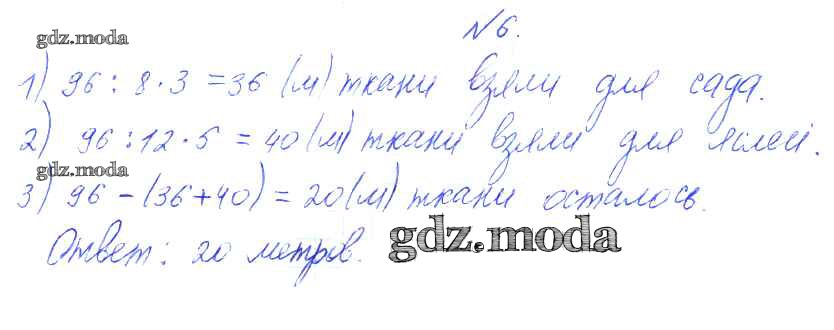 №6.
gdz.moda
1) 96 : 8 · 3 = 36 (м) ткани взяли для сада.
2) 96 : 12 · 5 = 40 (м) ткани взяли для яслей.
gdz.moda
3) 96 - (36 + 40) = 20 (м) ткани осталось.
Ответ: 20 метров.
gdz.moda